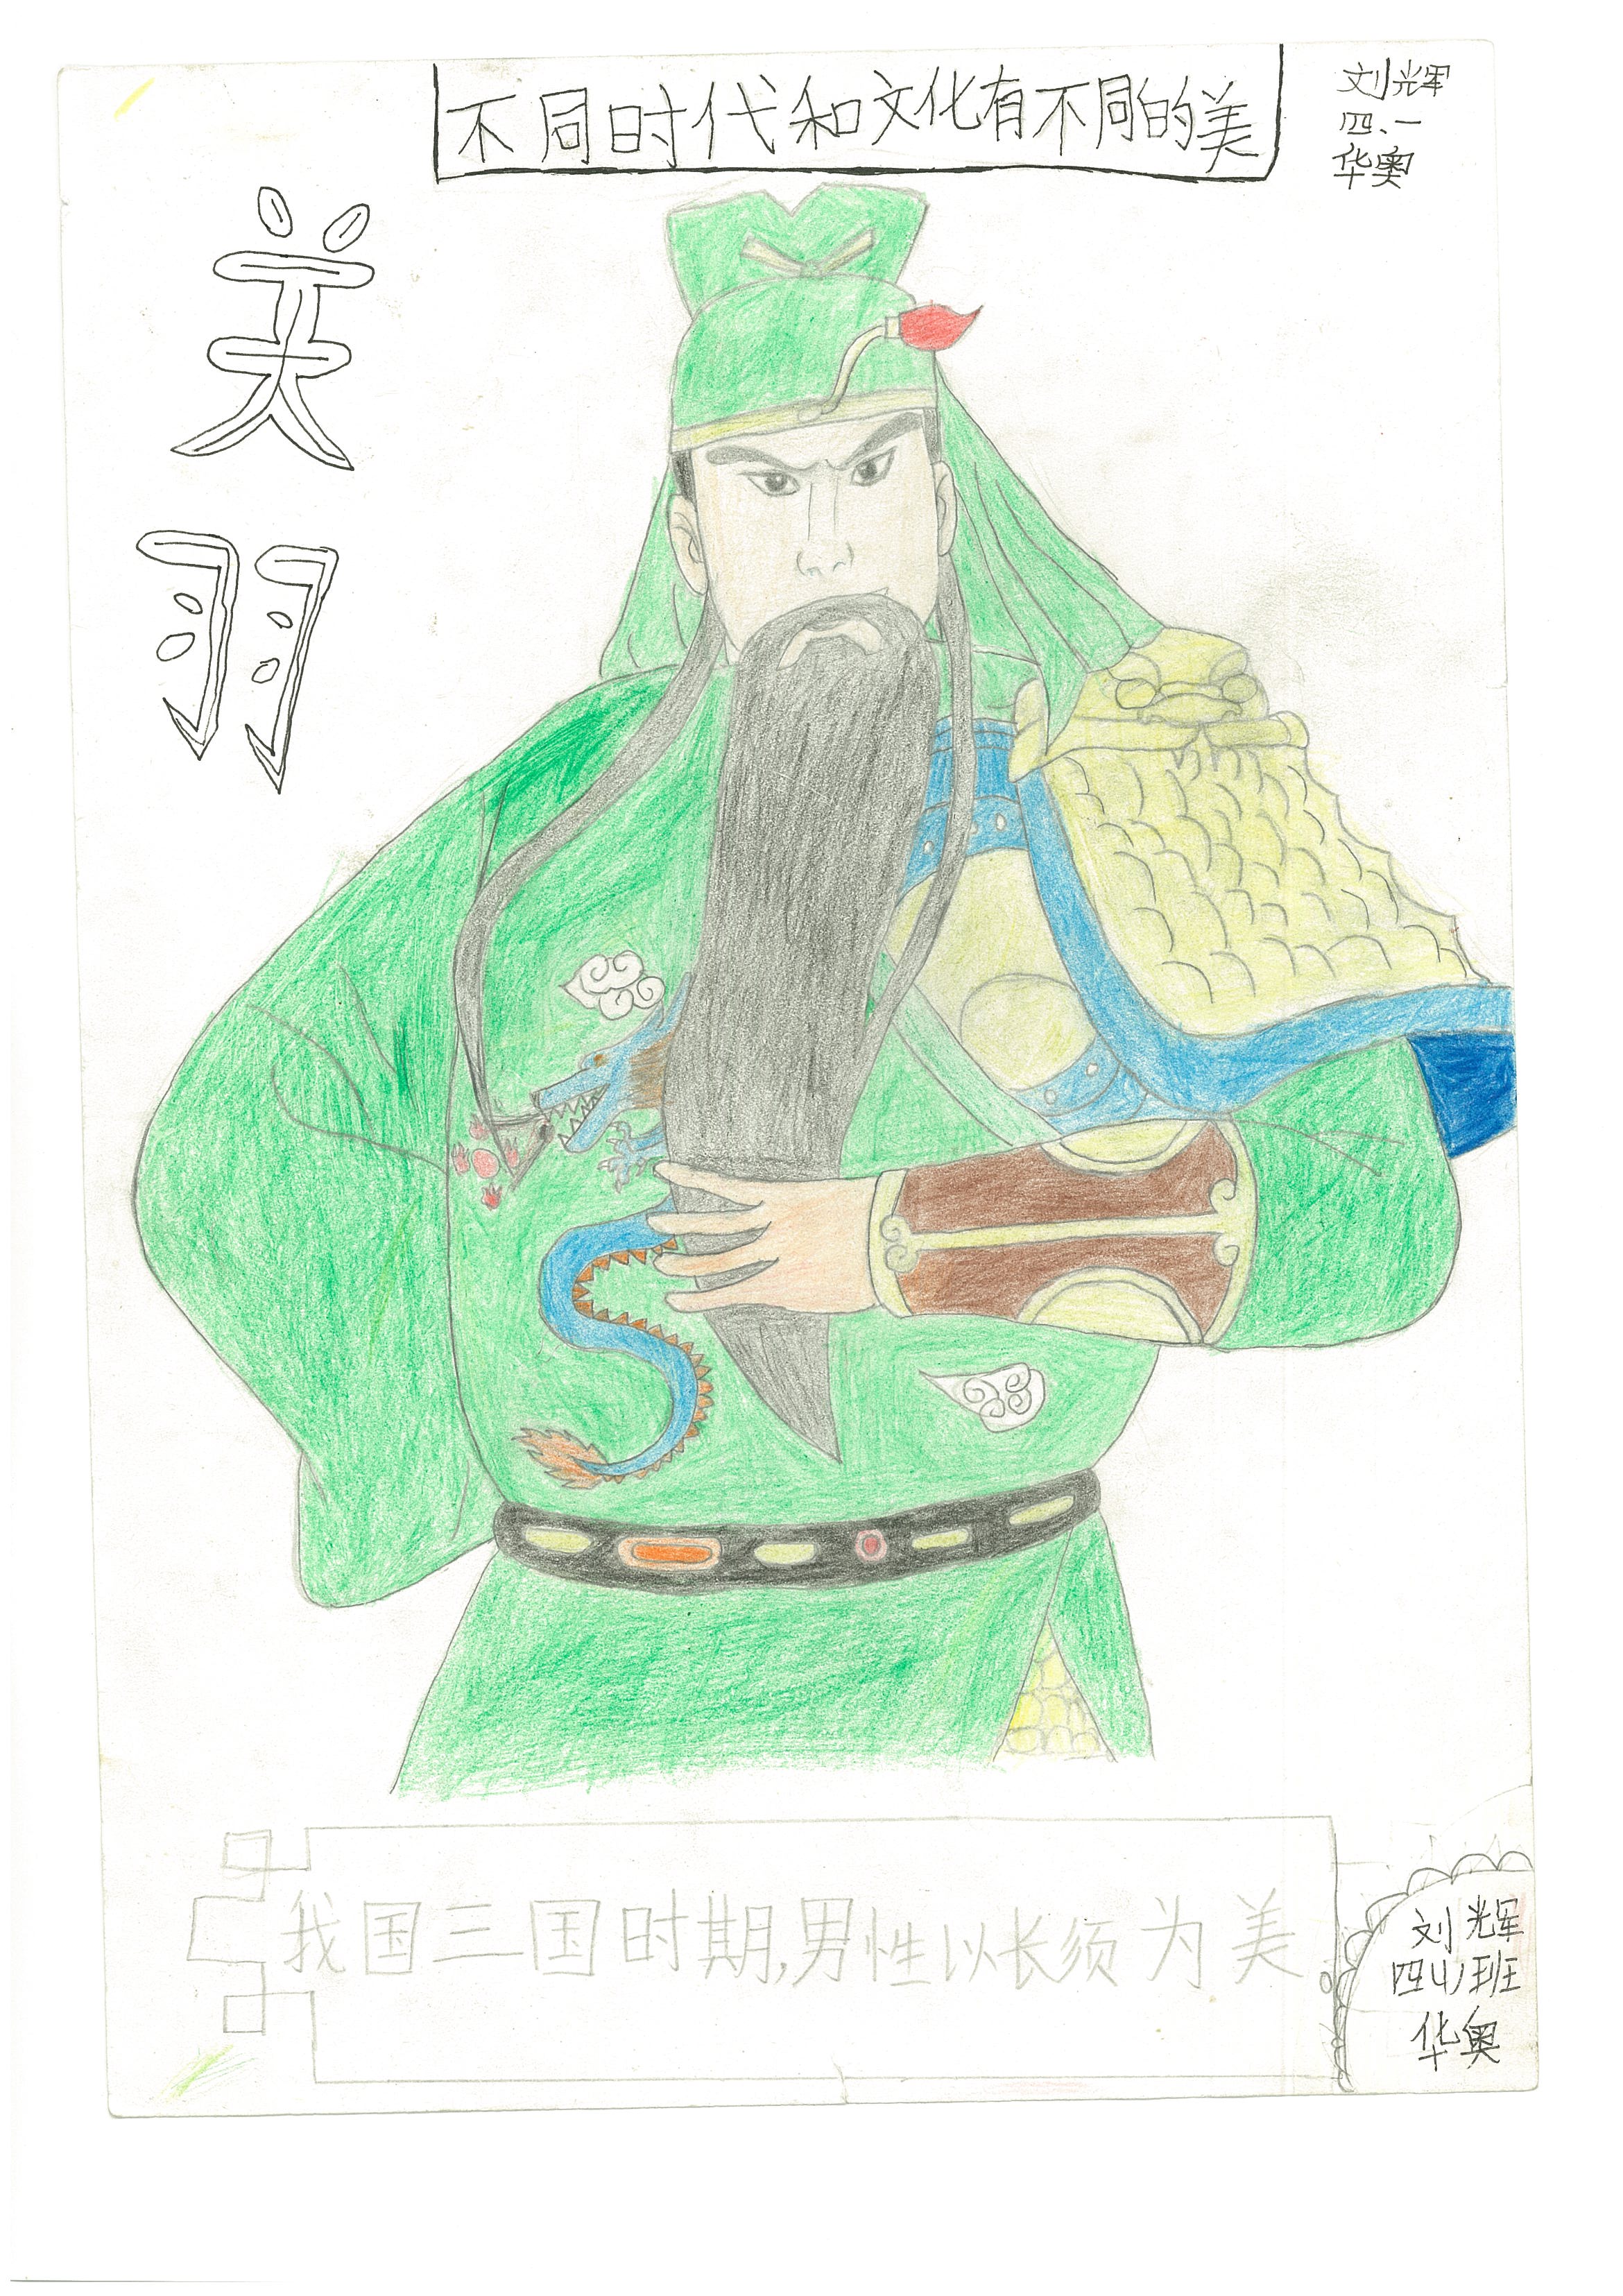 不同时代和文化有不同的美
刘辉
四、一
华奥
关羽
我国三国时期,男性以长须为美
刘辉
四(1)班
华奥